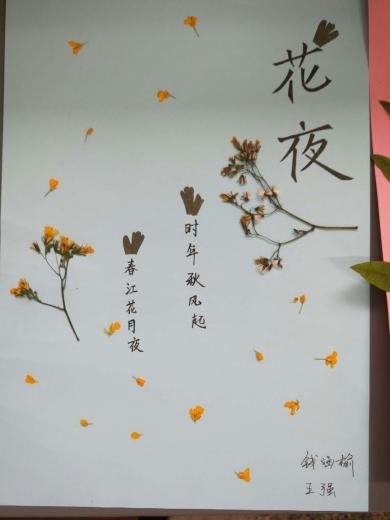 花夜
时年秋风起
春江花月夜
钱涵榆
王强